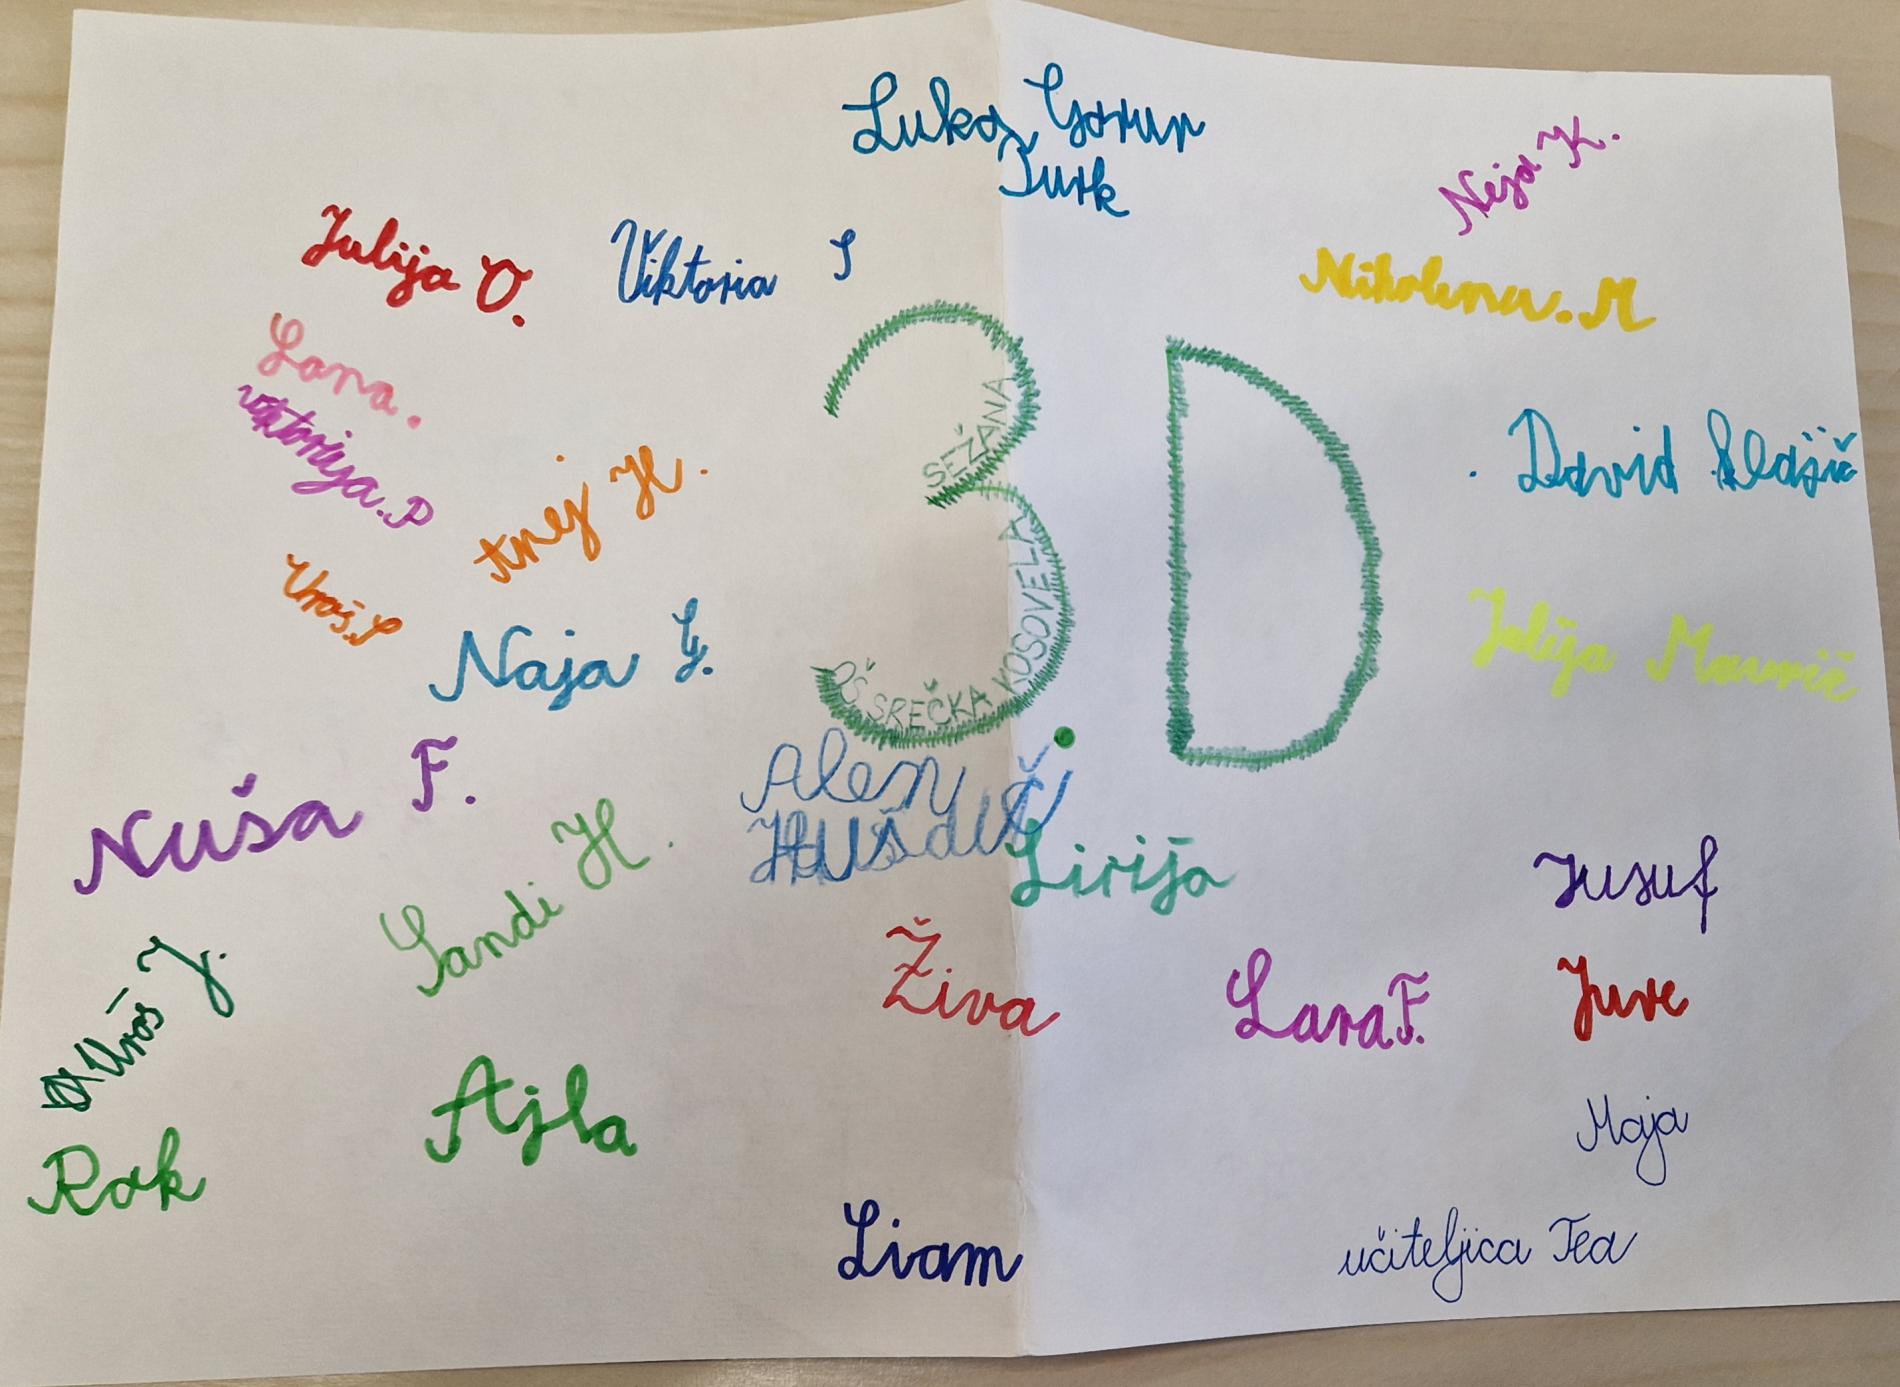 Luka Gorup
Turk
Neja K.
Julija O.
Viktoria S
Nikolina. M
Lana.
Viktorija. P
SEŽANA
David
Anej H.
Uroš. S
KOSOVELA
Julija Mavrič
Naja G.
OŠ SREČKA
Nuša F.
Alen
Sandi H.
Lirija
Jusuf
Uroš J.
Živa
Lara F.
Jure
Ajla
Maja
Rok
Liam
učiteljica Tea
3D.